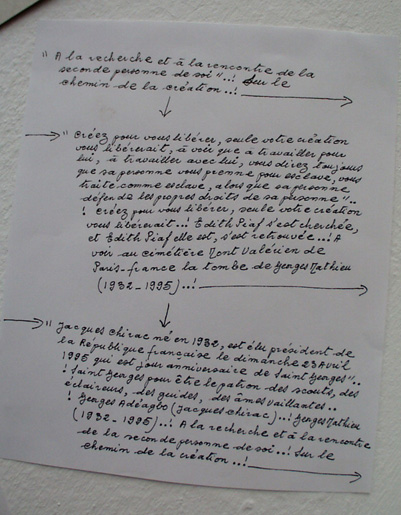 " A la recherche et à la rencontre de la
seconde personne de soi "..! Sur le
chemin de la création...!
" Créez pour vous libérer, seule votre création
vous libérerait, à voir que à travailler pour
lui, à travailler avec lui, vous direz toujours
que sa personne vous prenne pour esclave, vous
traite comme esclave, alors que sa personne
défende les propres droits de sa personne "..
! Créez pour vous libérer, seule votre création
vous libérerait...! Edith Piaf s'est cherchée,
et Edith Piaf elle est, s'est retrouvée...! A
voir au cimétière Mont Valérien de
Paris-france la tombe de Georges Mathieu
(1932-1995)..!
" Jacques Chirac né en 1932, est élu président de
la République française le dimanche 23 Avril
1995 qui est jour anniversaire de Saint Georges "..
! Saint Georges pour être le patron des scouts, des
éclaireurs, des guides, des âmes vaillantes..
! Georges Adéagbo (Jacques Chirac)..! Georges Mathieu
(1932-1995)..! A la recherche et à la rencontre
de la seconde personne de soi..! Sur le
chemin de la création...!